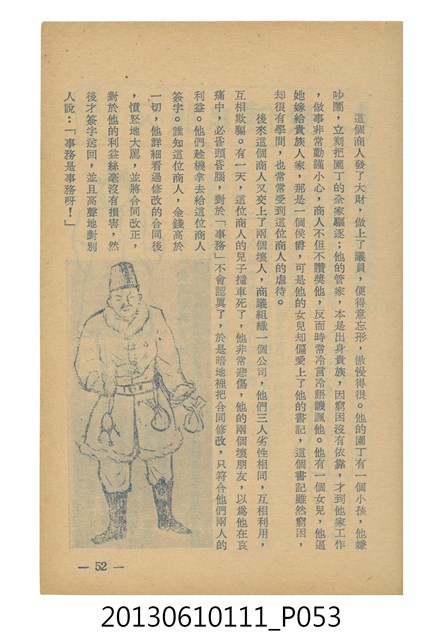 這個商人發了大財，做上了議員，便得意忘形，傲慢得很。他的園丁有一個小孩，他嫌
吵鬧，立刻把園丁的全家驅逐；他的管家，本是出身貴族，因窮困沒有依靠，才到他家工作
，做事非常勤謹小心，商人不但不讚獎他，反而時常冷言冷語譏諷他。他有一個女兒，他逼
她嫁給貴族人家，那是一個侯爵，可是他的女兒却偏愛上了他的書記，這個書記雖然窮困，
却很有學問，也常常受到這位商人的虐待。
後來這個商人又交上了兩個壞人，商議組織一個公司，他們三人劣性相同，互相利用，
互相欺騙。有一天，這位商人的兒子撞車死了，他非常悲傷，他的兩個壞朋友，以為他在哀
痛中，必昏頭昏腦，對於「事務」不會認眞了，於是暗地裡把合同修改，只符合他們兩人的
利益。他們趁機拿去給這位商人
簽字。誰知這位商人，金錢高於
一切，他詳細看過修改的合同後
，憤怒地大罵，並將合同改正，
對於他的利益絲毫沒有損害，然
後才簽字送回，並且高聲地對別
人說：「事務是事務呀！」
— 52 —
20130610111_P053